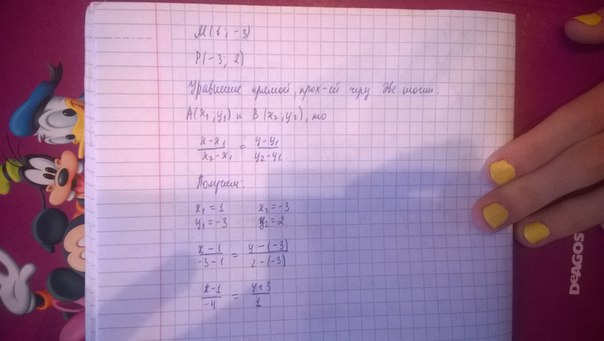 M(1; -3)
P(-3, 2)
Уравнение прямой, прох-ей через две точки:
A(x₁, y₁) и B(x₂, y₂), то
(x-x₁)/(x₂-x₁) = (y-y₁)/(y₂-y₁)
Получим:
x₁ = 1 x₂ = -3
y₁ = -3 y₂ = 2
(x-1)/(-3-1) = (y-(-3))/(2-(-3))
(x-1)/(-4) = (y+3)/1
DeAGOS